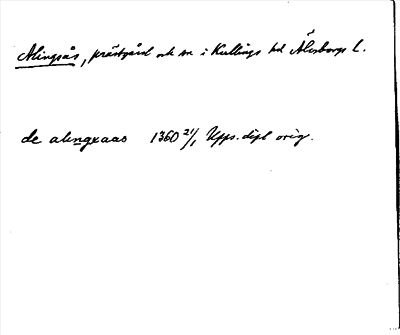 Alingsås, prästgård och sn i Kullings hd Älvsborgs l.
de alingxaas 1360 21/1 Upps. dipl orig.